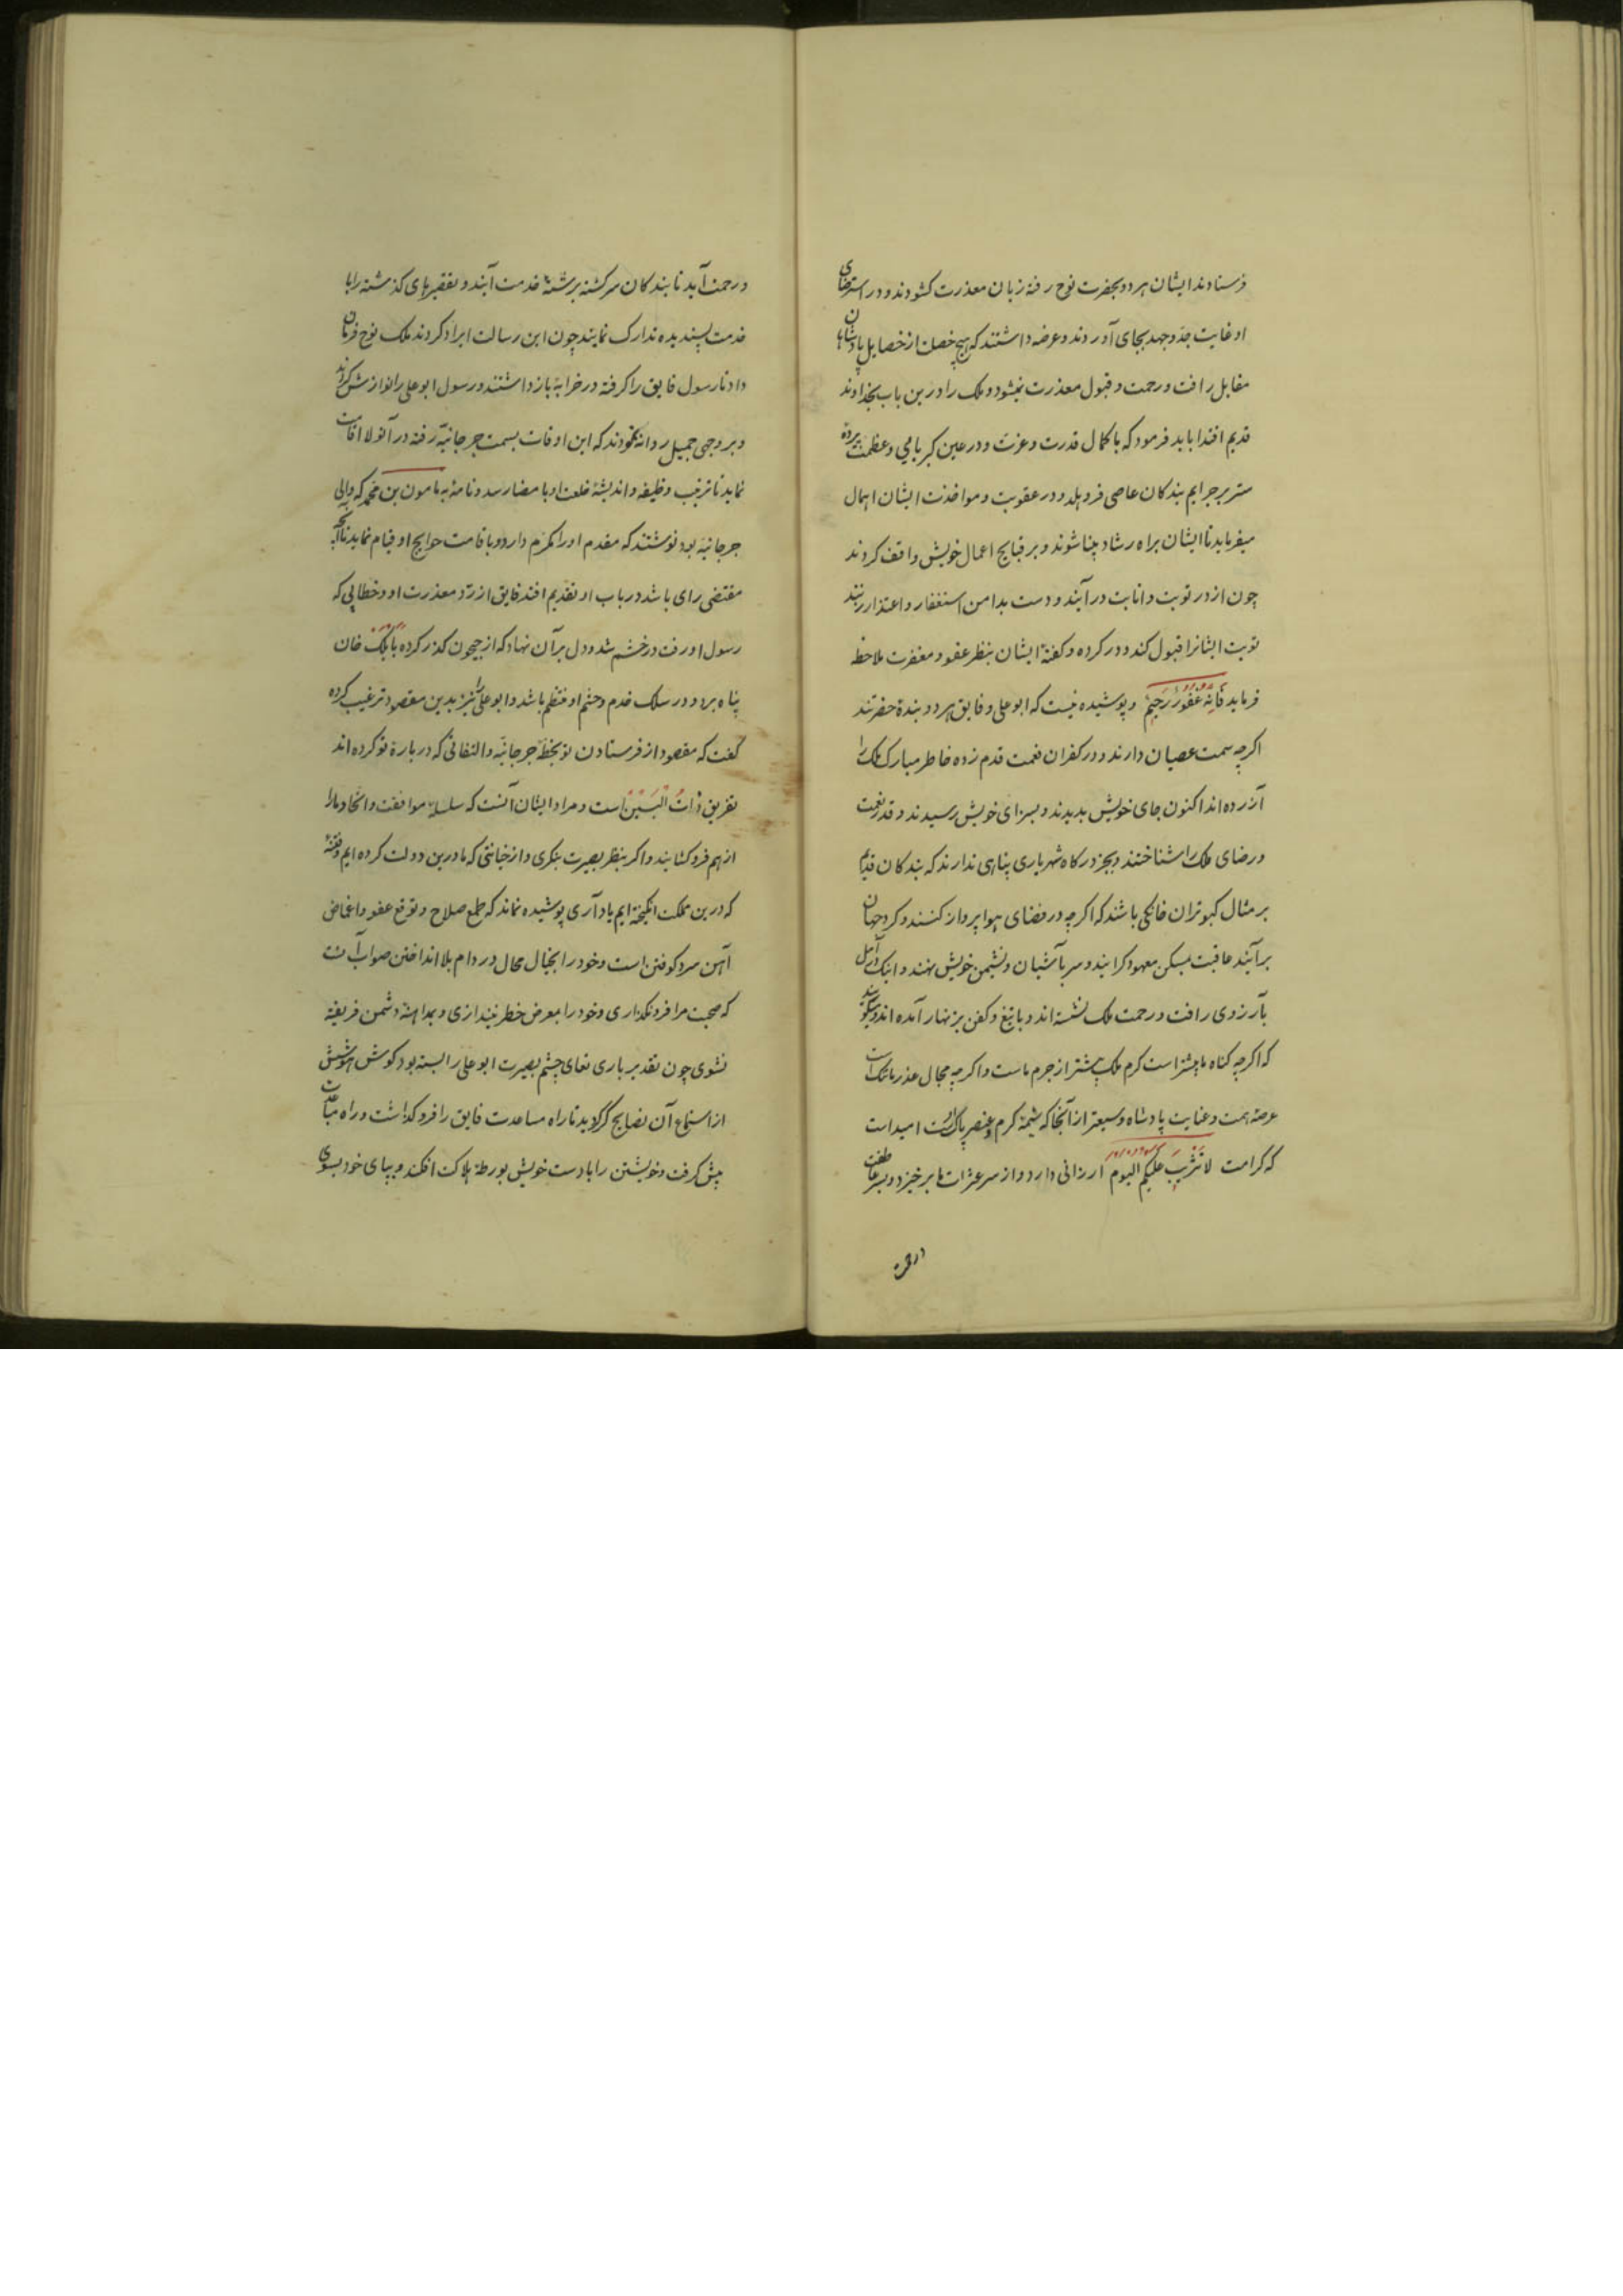 فرستادند ایشان هر دو بحضرت نوح رفته زبان معذرت کشودند و در استرضای
او غایت جد و جهد بجای آوردند و عرضه داشتند که هیچ خصلت از خصایل پادشاهان
مقابل رافت و رحمت و قبول معذرت نمیشود و ملک را درین باب بخداوند
قدیم اقتدا باید فرمود که با کمال قدرت و عزت و در عین کبریایی و عظمت پرده
ستر بر جرایم بندکان عاصی فرو هلد و در عقوبت و مواخذت ایشان اهمال
میفرماید تا ایشان براه رشاد بینا شوند و بر قبایح اعمال خویش واقف کردند
چون از در توبت و انابت در آیند و دست بدامن استغفار و اعتذار زنند
توبت ایشانرا قبول کند و در کرده و کفتهٔ ایشان بنظر عفو و مغفرت ملاحظه
فرماید فَاِنَّهُ غَفُورٌ رَحِیمٌ و پوشیده نیست که ابو علی و فایق هر دو بندهٔ حضرتند
اکرچه سمت عصیان دارند و در کفران نعمت قدم زده خاطر مبارک ملک را
آزرده اند اکنون جای خویش بدیدند و بسزای خویش رسیدند و قدر نعمت
و رضای ملک را شناختند و بجز درکاه شهریاری پناهی ندارند که بندکان قدیم
بر مثال کبوتران خانکی باشند که اکرچه در فضای هوا پرواز کنند و کرد جهان
برآیند عاقبت بمسکن معهود کرایند و سر بآشیان و نشیمن خویش نهند و اینک در آمل
بآرزوی رافت و رحمت ملک نشسته اند و با تیغ و کفن بزنهار آمده اند و میکویند
که اکرچه کناه ما بیشتر است کرم ملک بیشتر از جرم ماست و اکرچه مجال عذر ما تنکست
عرصهٔ همت و عنایت پادشاه وسیعتر از آنجا که شیمهٔ کرم و عنصر پاک اوست امید است
که کرامت لا تَثْرِیبَ عَلَیکُمُ الیوم ارزانی دارد و از سر عثرات ما برخیزد و بسر عاطفت
در رحمت
در رحمت آید تا بندکان سرکشته برشتهٔ خدمت آیند و تقصیرهای کذشته را با
خدمت پسندیده تدارک نمایند چون این رسالت ایراد کردند ملک نوح فرمان
داد تا رسول فایق را کرفته در خرابهٔ باز داشتند و رسول ابو علی را نوازش کردند
و بر وجهی جمیل روانه نمودند که این اوقات بسمت جرجانیّه رفته در آنولا اقامت
نماید تا ترتیب وظیفه و اندیشهٔ خلعت او با مضا رسد و نامهٔ به مامون بن محمد که والی
جرجانیه بود نوشتند که مقدم او را مکرّم دارد و باقامت حوایج او قیام نماید تا آنچه
مقتضی رای باشد در باب او بتقدیم افتد فایق از رد معذرت او و خطایی که
رسول او رفت در خشم شد و دل بر آن نهاد که از جیحون کذر کرده بایلک خان
پناه برد و در سلک خدم و حشم او منتظم باشد و ابو علی را نیز بدین مقصود ترغیب کرده
کفت که مقصود از فرستادن تو بخطّهٔ جرجانیّه و التفاتی که دربارهٔ تو کرده اند
تفریق ذاتُ البَیْنِ است و مراد ایشان آنست که سلسلهٔ موافقت و اتحاد ما را
از هم فرو کشایند و اکر بنظر بصیرت بنکری و از خیانتی که ما درین دولت کرده ایم و فتنهٔ
که درین مملکت انکیخته ایم یاد آری پوشیده نماند که طمع صلاح و توقع عفو و اغماض
آهن سرد کوفتن است و خود را بخیال محال در دام بلا انداختن صواب آنست
که صحبت مرا فرو نکذاری و خود را بمعرض خطر نیندازی و بمداهنهٔ دشمن فریفته
نشوی چون تقدیر باری تعالی چشم بصیرت ابو علی را بسته بود کوش هوشش
از استماع آن نصایح کر کردید تا راه مساعدت فایق را فرو کذاشت و راه مباعدت
پیش کرفت و خویشتن را با دست خویش بورطهٔ هلاکت افکند و بپای خود بسوی